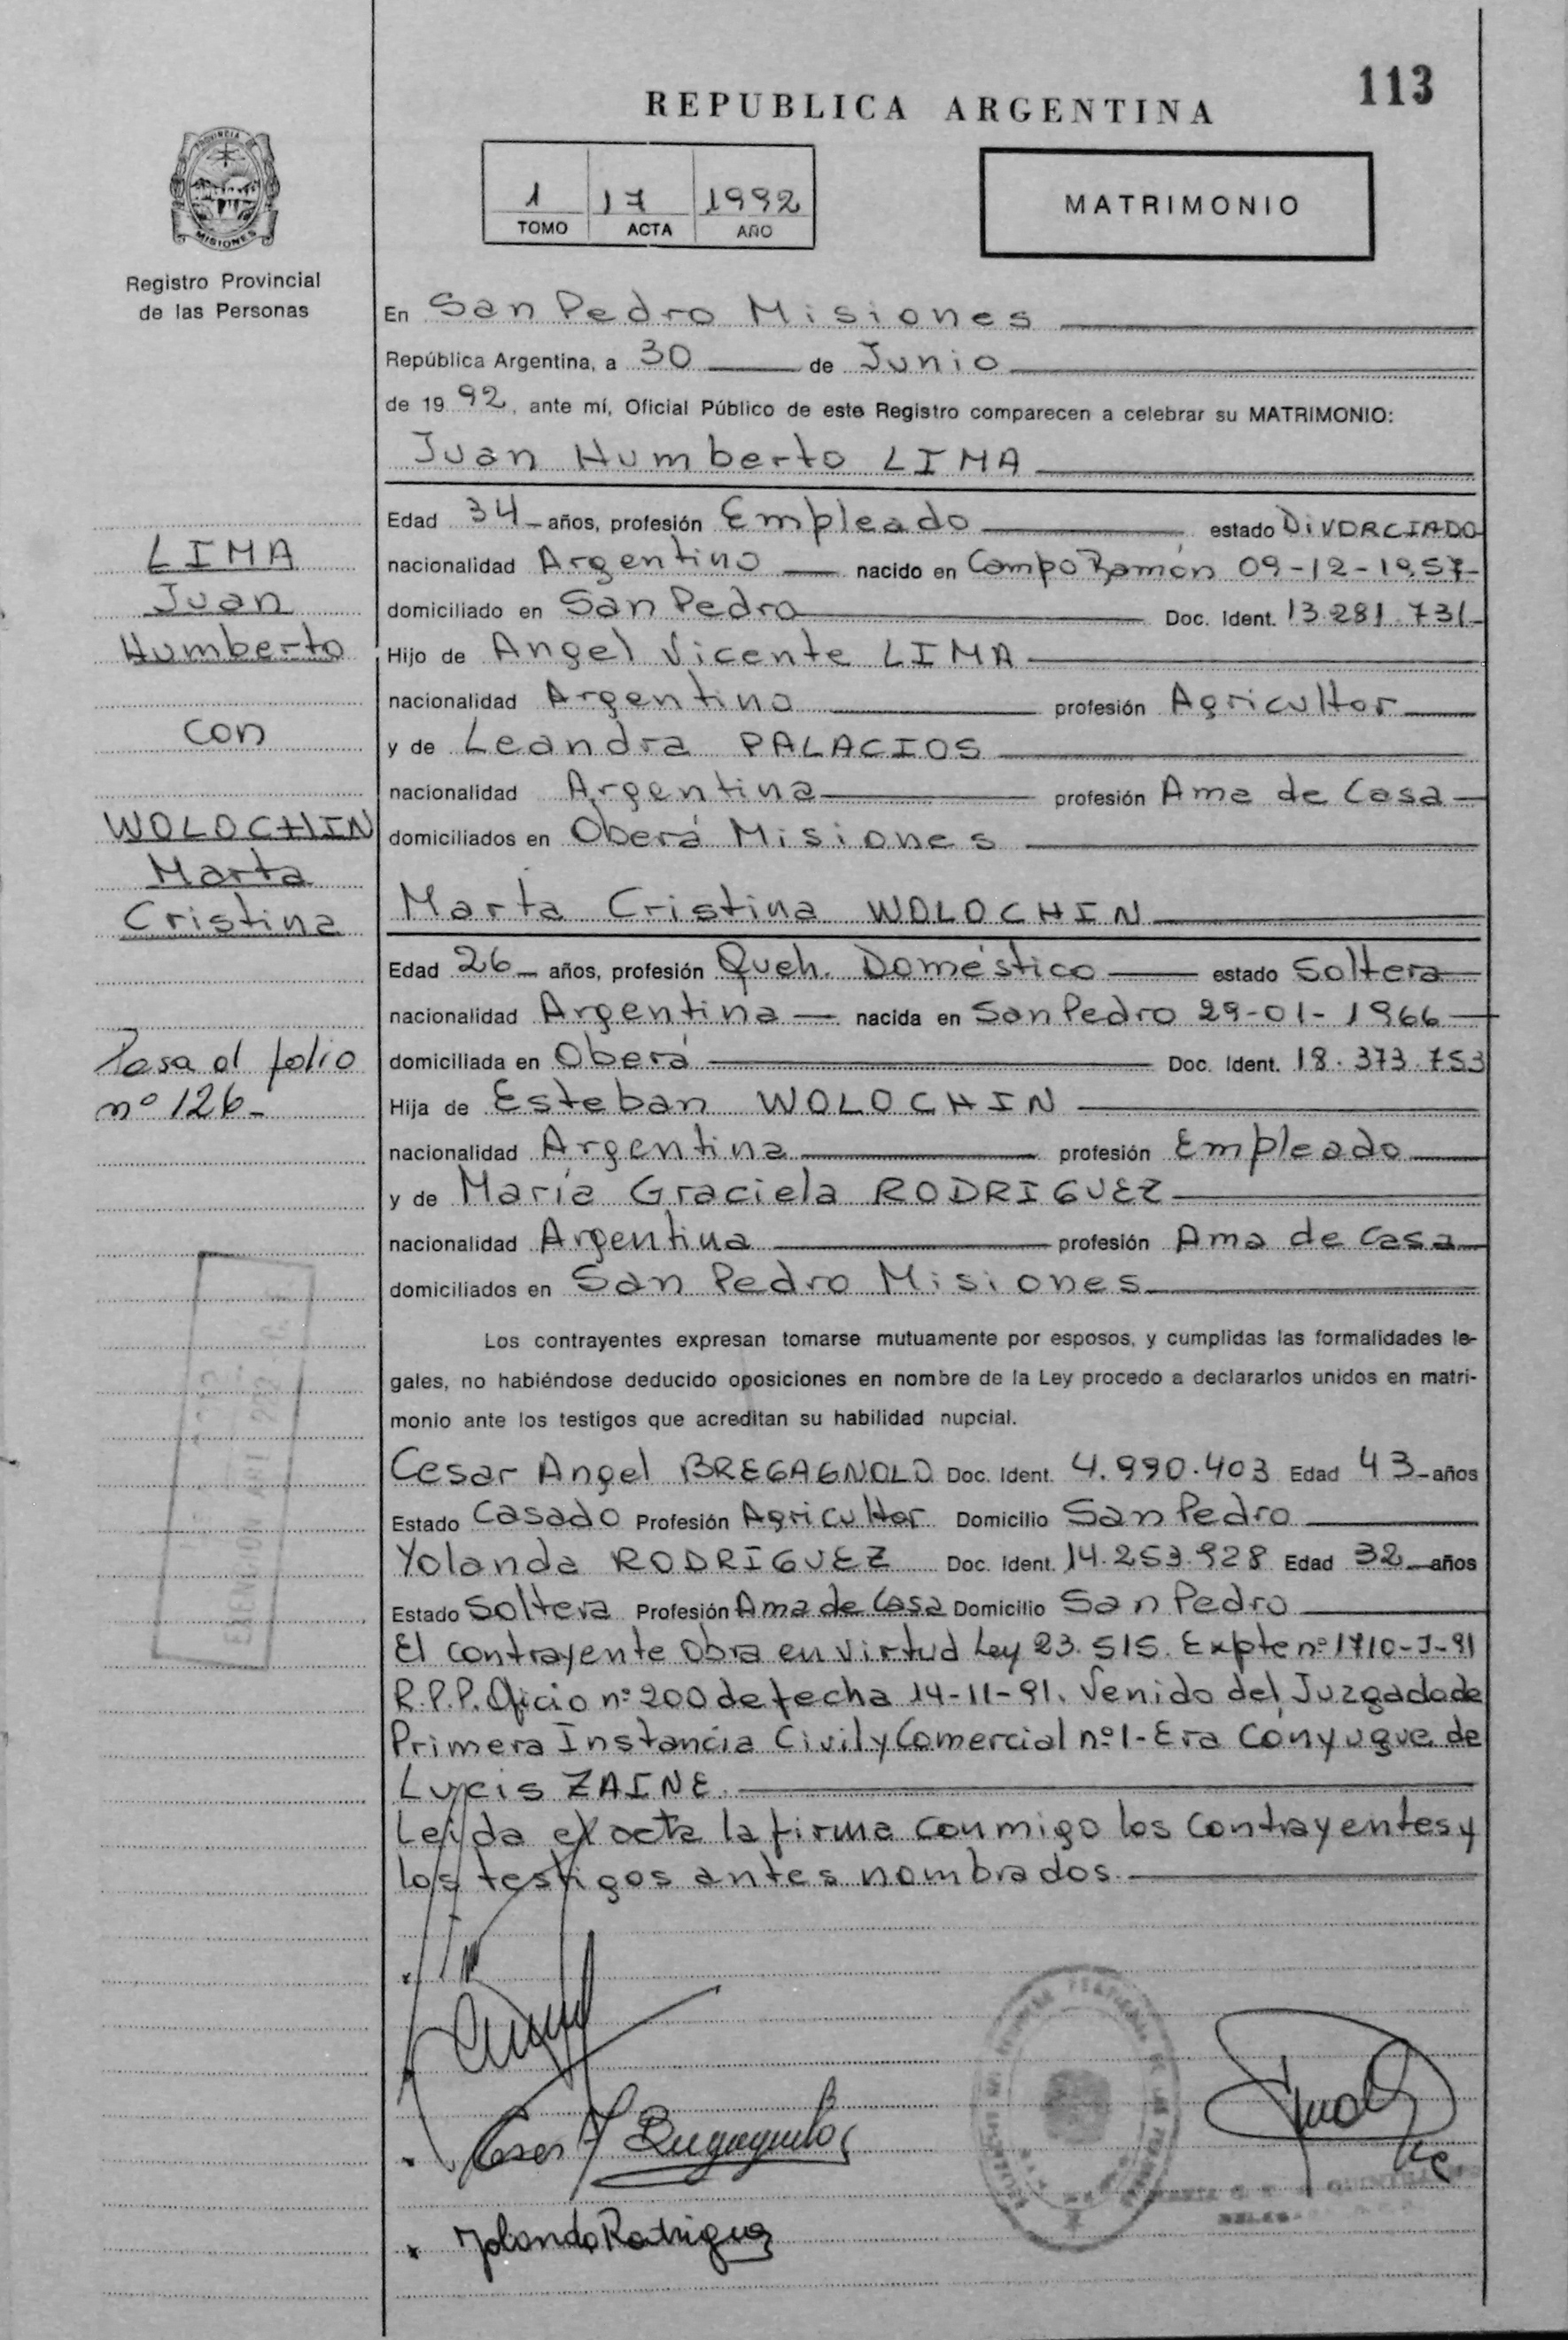 113
REPUBLICA ARGENTINA
PROVINCIA
MISIONES
Registro Provincial
de las Personas
1 17 1992
TOMO ACTA AÑO
MATRIMONIO
En San Pedro Misiones
República Argentina, a 30 de Junio
de 19 92, ante mí, Oficial Público de este Registro comparecen a celebrar su MATRIMONIO:
Juan Humberto LIMA
Edad 34 años, profesión Empleado estado DIVORCIADO
nacionalidad Argentino nacido en Campo Ramón 09-12-1957
domiciliado en San Pedro Doc. Ident. 13.281.731
Hijo de Angel Vicente LIMA
nacionalidad Argentino profesión Agricultor
y de Leandra PALACIOS
nacionalidad Argentina profesión Ama de Casa
domiciliados en Oberá Misiones
Marta Cristina WOLOCHIN
Edad 26 años, profesión Queh. Doméstico estado Soltera
nacionalidad Argentina nacida en San Pedro 29-01-1966
domiciliada en Oberá Doc. Ident. 18.373.753
Hija de Esteban WOLOCHIN
nacionalidad Argentina profesión Empleado
y de María Graciela RODRIGUEZ
nacionalidad Argentina profesión Ama de Casa
domiciliados en San Pedro Misiones
Los contrayentes expresan tomarse mutuamente por esposos, y cumplidas las formalidades le-
gales, no habiéndose deducido oposiciones en nombre de la Ley procedo a declararlos unidos en matri-
monio ante los testigos que acreditan su habilidad nupcial.
Cesar Angel BREGAGNOLO Doc. Ident. 4.990.403 Edad 43 años
Estado Casado Profesión Agricultor Domicilio San Pedro
Yolanda RODRIGUEZ Doc. Ident. 14.253.928 Edad 32 años
Estado Soltera Profesión Ama de Casa Domicilio San Pedro
El contrayente Obra en virtud Ley 23.515. Expte nº 1710-J-91
R.P.P. Oficio nº 200 de fecha 14-11-91. Venido del Juzgado de
Primera Instancia Civil y Comercial nº 1-Era Cónyugue de
Lucis ZAINE
Leída el acta la firma conmigo los Contrayentes y
los testigos antes nombrados
Yolanda Rodriguez
LIMA
Juan
Humberto
con
WOLOCHIN
Marta
Cristina
Pasa al folio
nº 126